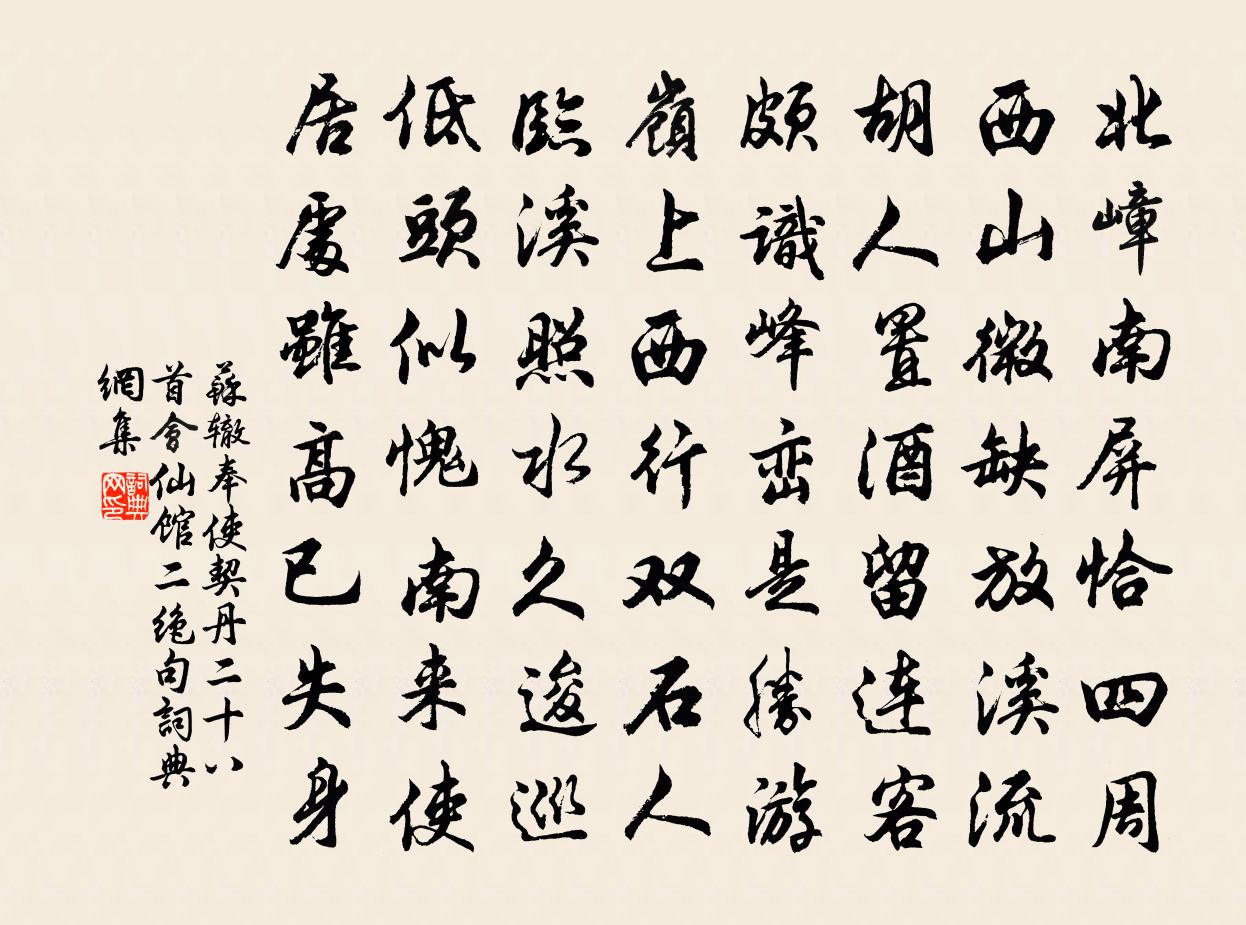 北嶂南屏恰四周
西山微缺放溪流
胡人置酒留连客
颇識峰峦是勝游
嶺上西行双石人
臨溪照水久逡巡
低頭似愧南来使
居處雖高已失身
蘇辙奉使契丹二十八
首會仙馆二絶句詞典
網集
詞典网印